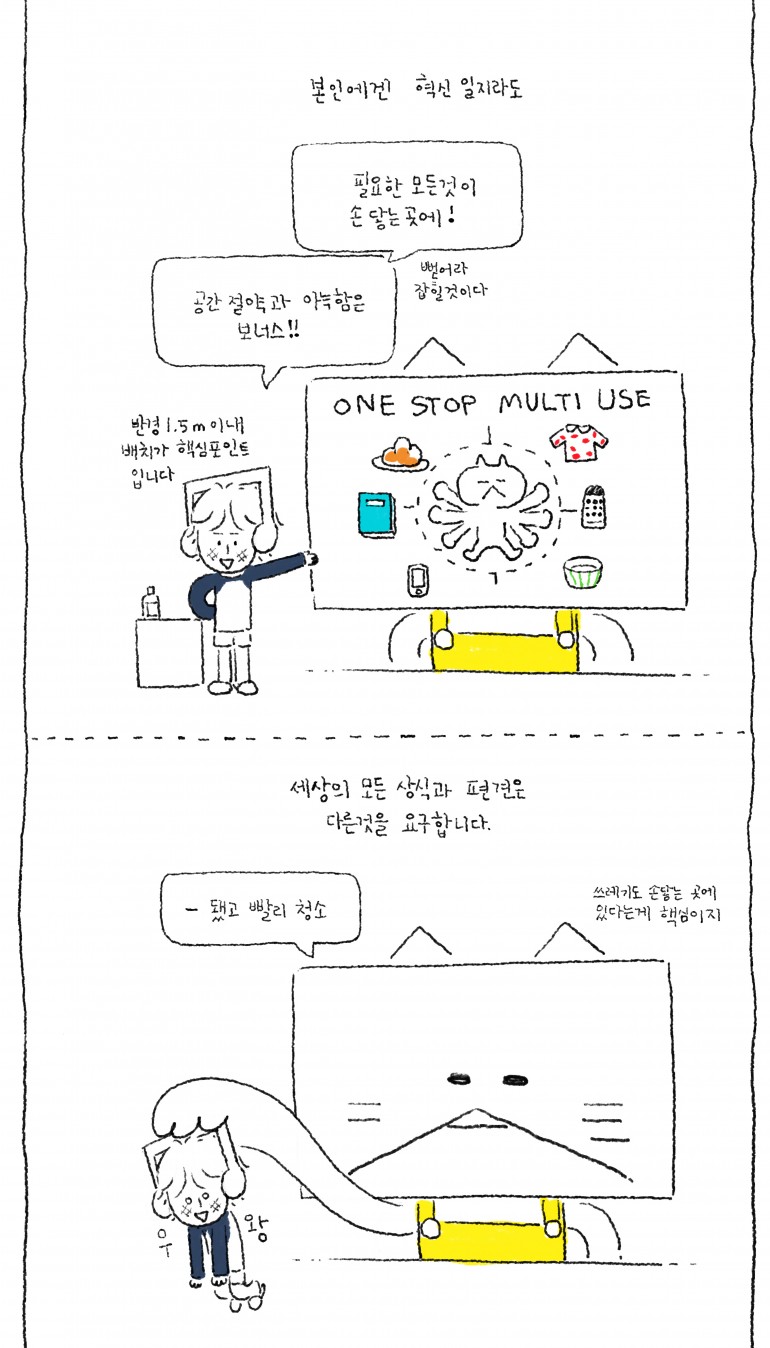 본인에겐 혁신 일지라도
필요한 모든것이
손 닿는 곳에!
뻗어라
잡힐것이다
공간 절약과 아늑함은
보너스!!
반경 1.5m 이내
배치가 핵심포인트
입니다
ONE STOP MULTI USE
세상의 모든 상식과 편견은
다른것을 요구합니다.
- 됐고 빨리 청소
쓰레기도 손닿는 곳에
있다는게 핵심이지
우왕